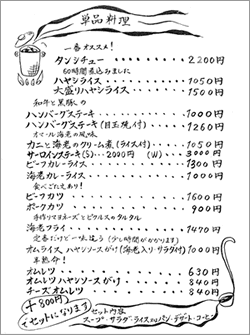 単品料理
一番オススメ!
タンシチュー 2200円
60時間煮込みました
ハヤシライス 1050円
大盛りハヤシライス 1500円
和牛と黒豚の
ハンバーグステーキ 1000円
ハンバーグステーキ(目玉焼付) 1260円
オマール海老の風味
カニと海老のクリーム煮(ライス付) 1050円
サーロインステーキ(S)…2000円 (W) 3000円
ビーフカレーライス 1300円
海老カレーライス 1000円
食べごたえあり!
ビーフカツ 1600円
ポークカツ 900円
手作りマヨネーズとピクルスのタルタル
海老フライ 1470円
定番だけど一味違う(少し時間がかかります)
オムライスハヤシソースがけ(海老入りサラダ付) 1000円
半熟命!
オムレツ 630円
オムレツハヤシソースがけ 840円
チーズオムレツ 840円
+800円で
セットになります
セット内容
スープ・サラダ・ライスorパン・デザート・コーヒー